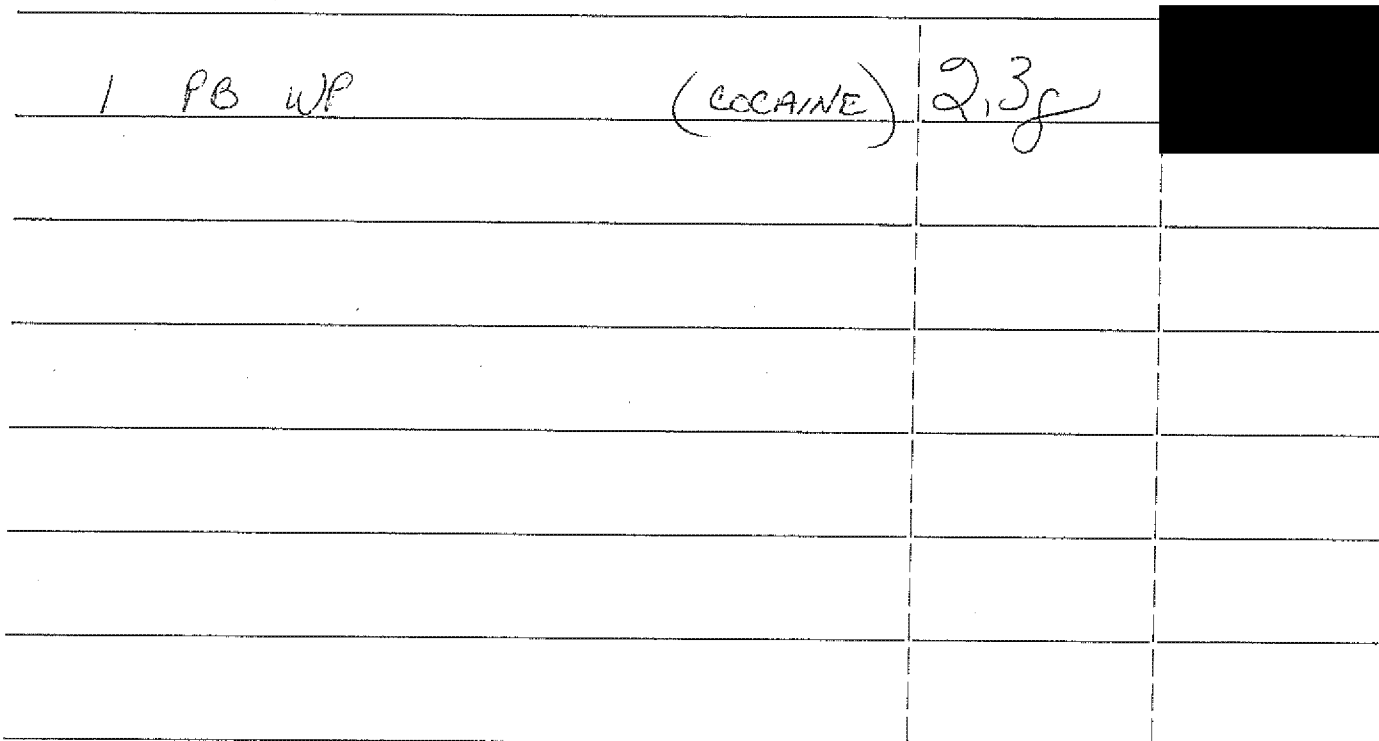 1 PB WP (COCAINE) 2.3g